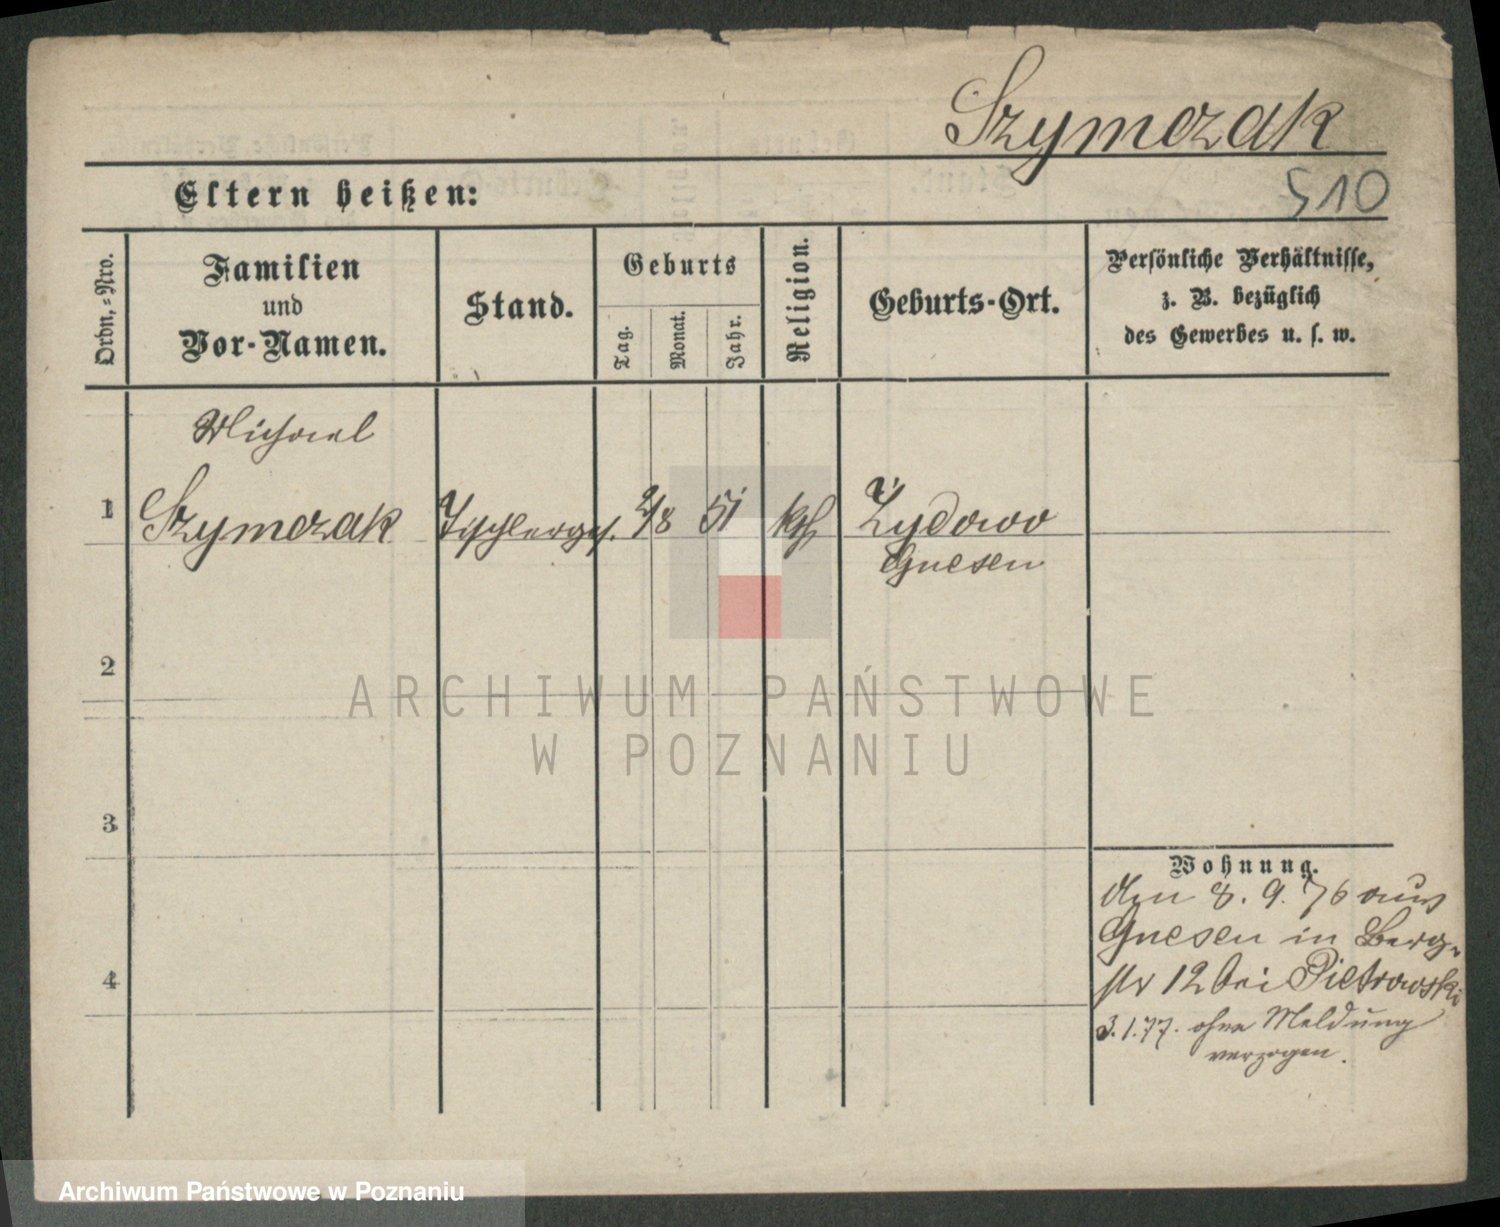 Szymczak
Eltern heißen:
510
Ordn.-Nro.
Familien
und
Vor-Namen.
Stand.
Geburts
Tag.
Monat.
Jahr.
Religion.
Geburts-Ort.
Persönliche Verhältnisse,
z. B. bezüglich
des Gewerbes u. s. w.
Michael
1
Szymczak
Tischlerges.
2/8
51
kth
Żydowo
Gnesen
2
ARCHIWUM PAŃSTWOWE
W POZNANIU
3
Wohnung.
den 8. 9. 76 aus
Gnesen in Berg-
str 12 bei Pietrowski
4
3.1.77. ohne Meldung
verzogen.
Archiwum Państwowe w Poznaniu